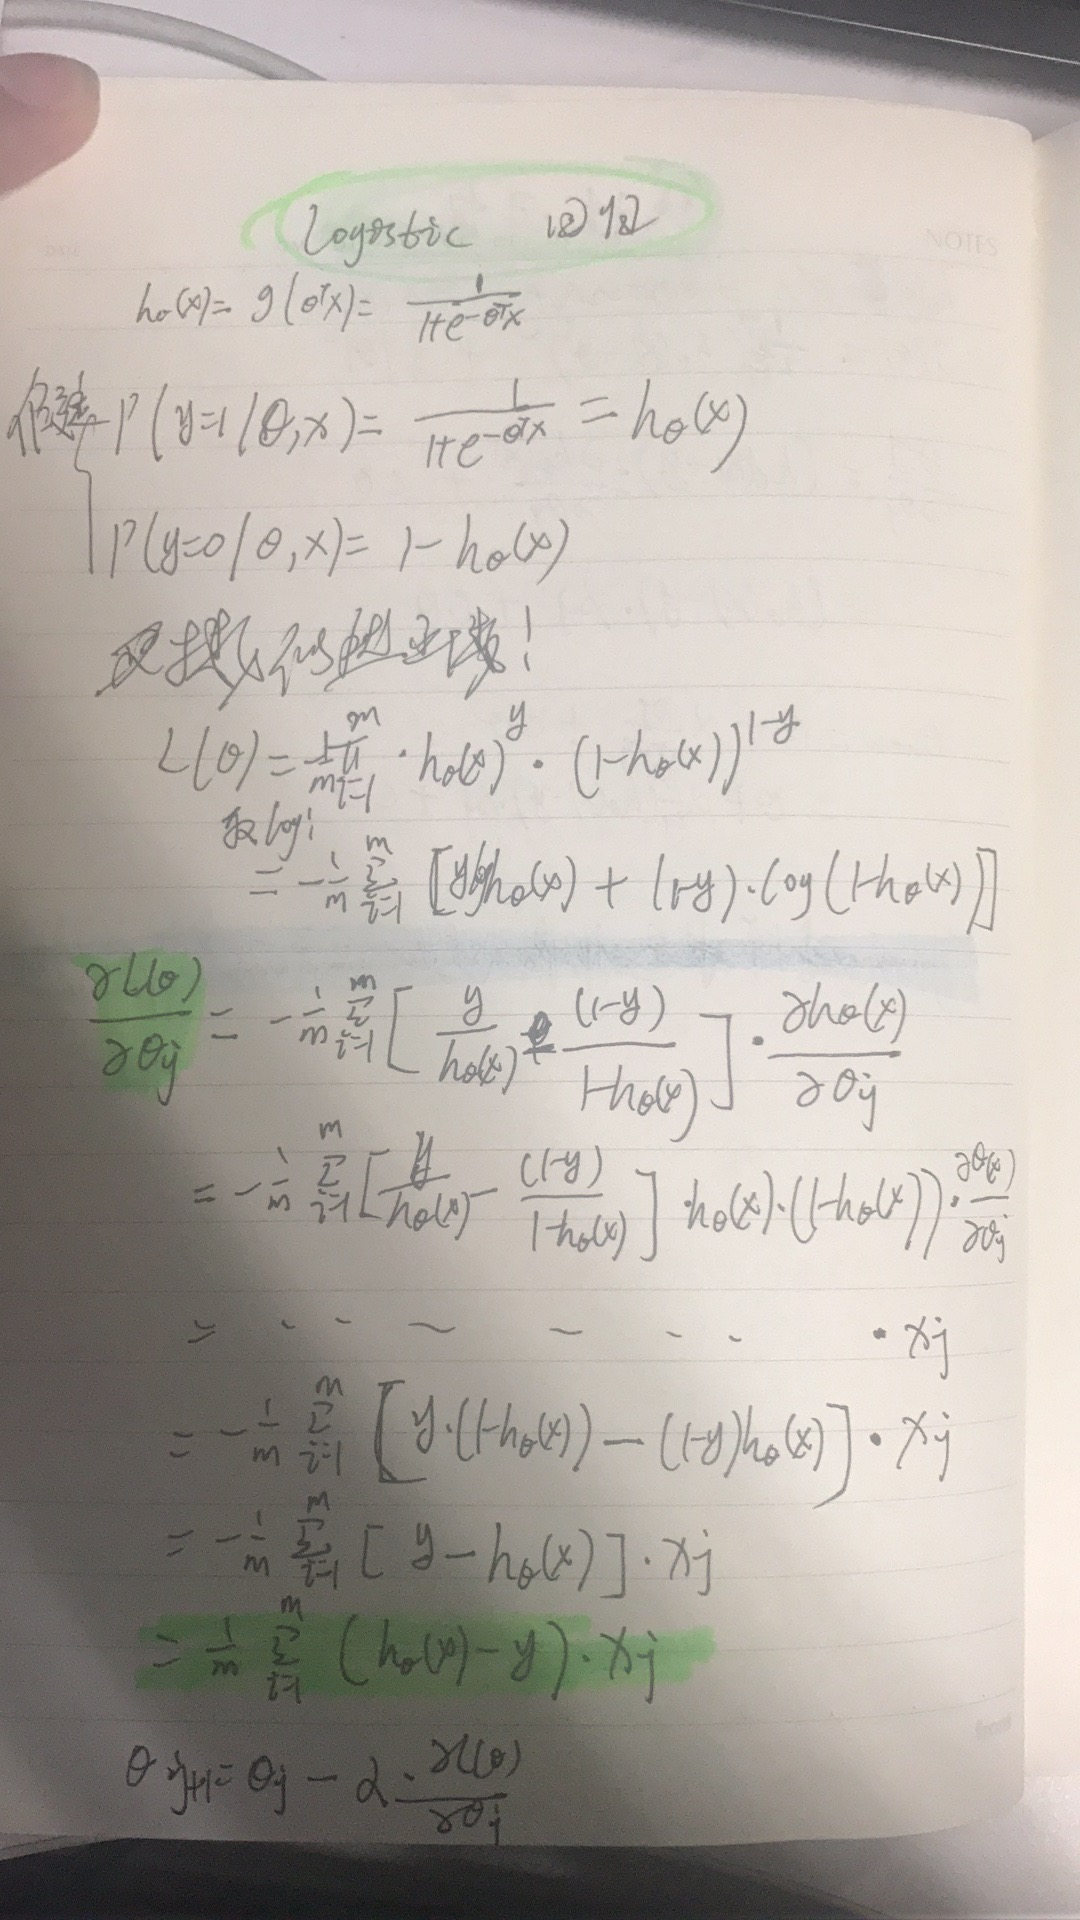 NOTES
Logostic 回归
hθ(x)= g(θᵀx)= 1/(1+e^(-θᵀx))
P(y=1/θ,x)= 1/(1+e^(-θᵀx)) = hθ(x)
P(y=0/θ,x)= 1-hθ(x)
L(θ)= 1/m ∏_{i=1}^{m} · hθ(x)^y · (1-hθ(x))^(1-y)
取log:
= -1/m ∑_{i=1}^{m} [y log hθ(x) + (1-y)·log(1-hθ(x))]
∂L(θ)/∂θj = -1/m ∑_{i=1}^{m} [ y/hθ(x) (1-y)/(1-hθ(x)) ] · ∂hθ(x)/∂θj
= -1/m ∑_{i=1}^{m} [ y/hθ(x) - (1-y)/(1-hθ(x)) ] ·hθ(x)·(1-hθ(x))· ∂θ(x)/∂θj
= - - - - - - · xj
= -1/m ∑_{i=1}^{m} [ y·(1-hθ(x)) - (1-y)hθ(x) ] · xj
= -1/m ∑_{i=1}^{m} [ y - hθ(x) ] · xj
= 1/m ∑_{i=1}^{m} (hθ(x)-y)· xj
θj+1 = θj - α · ∂L(θ)/∂θj